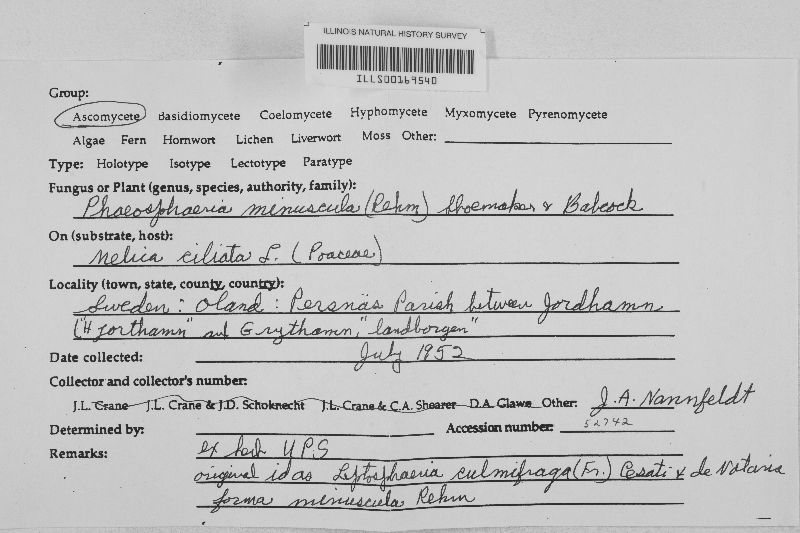 ILLINOIS NATURAL HISTORY SURVEY
ILLS00169540
Group:
Ascomycete Basidiomycete Coelomycete Hyphomycete Myxomycete Pyrenomycete
Algae Fern Hornwort Lichen Liverwort Moss Other:
Type: Holotype Isotype Lectotype Paratype
Fungus or Plant (genus, species, authority, family):
Phaeosphaeria minuscula (Rehm) Shoemaker & Babcock
On (substrate, host):
Melica ciliata L. (Poaceae)
Locality (town, state, county, country):
Sweden: Oland: Persnäs Parish between Jordhamn
("Hjorthamn" and Grythamn, "landborgen"
Date collected: July 1952
Collector and collector's number:
J.L. Crane J.L. Crane & J.D. Schoknecht J.L. Crane & C.A. Shearer D.A. Glawe Other: J.A. Nannfeldt
Determined by: Accession number: 52742
Remarks: ex herb UPS
original id as Leptosphaeria culmifraga (Fr.) Cesati & de Notaris
forma minuscula Rehm